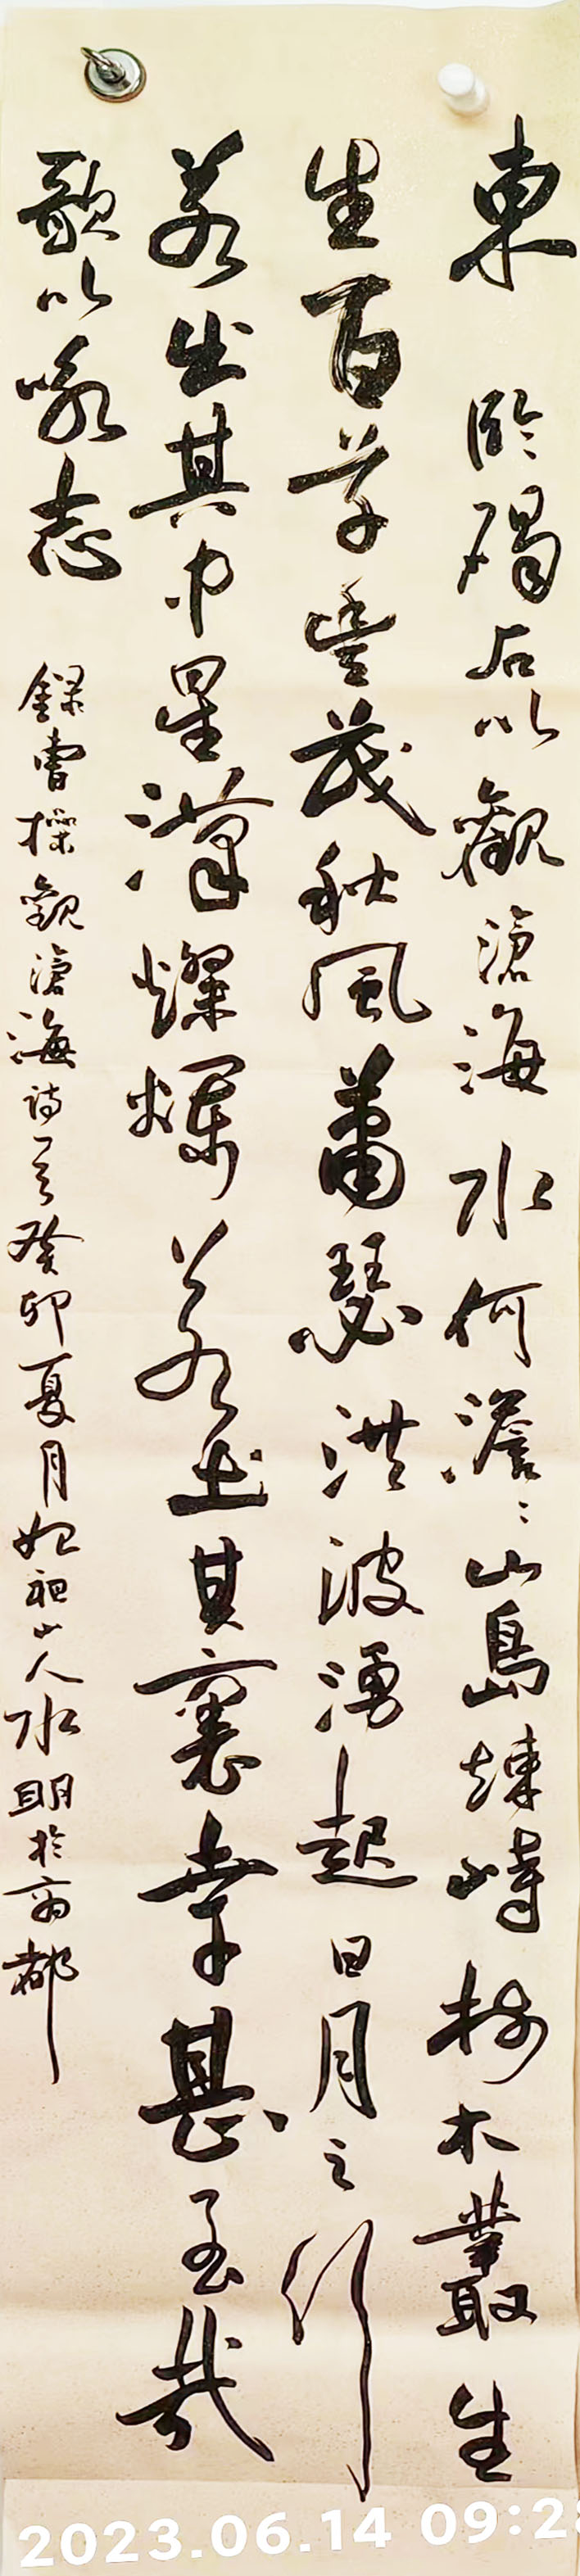 東 臨碣石以觀滄海水何澹〻山島竦峙樹木叢生
生百草豐茂秋風蕭瑟洪波湧起日月之行
若出其中星漢燦爛若出其裏幸甚至哉
歌以咏志 錄曹操觀滄海詩一首癸卯夏月始祖山人水明於商都
2023.06.14 09:28